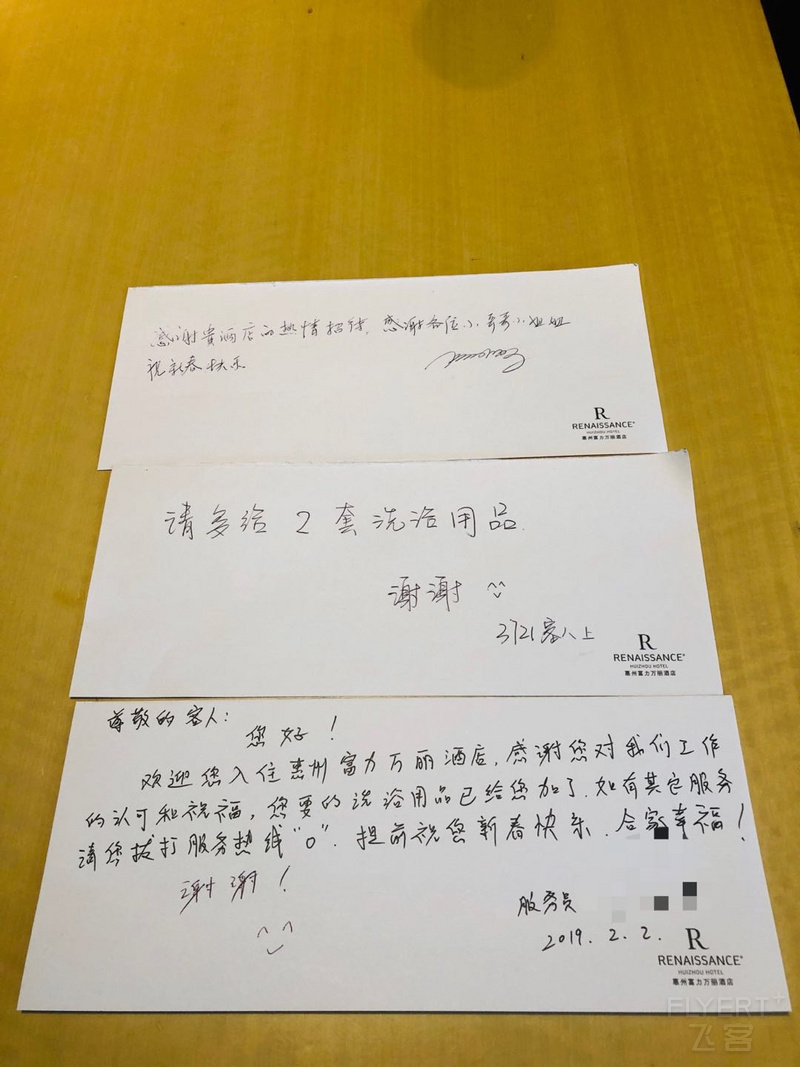 感谢贵酒店的热情招待，感谢各位小哥哥小姐姐
祝新春快乐
R
RENAISSANCE
HUIZHOU HOTEL
惠州富力万丽酒店
请多给 2 套洗浴用品.
谢谢 ^^
3721客人上
R
RENAISSANCE
HUIZHOU HOTEL
惠州富力万丽酒店
尊敬的客人：
您好！
欢迎您入住惠州富力万丽酒店，感谢您对我们工作
的认可和祝福，您要的洗浴用品已给您加了.如有其它服务
请您拨打服务热线“0”.提前祝您新春快乐.合家幸福！
谢谢！
服务员
2019.2.2.
R
RENAISSANCE
HUIZHOU HOTEL
惠州富力万丽酒店
FLYERT+
飞客